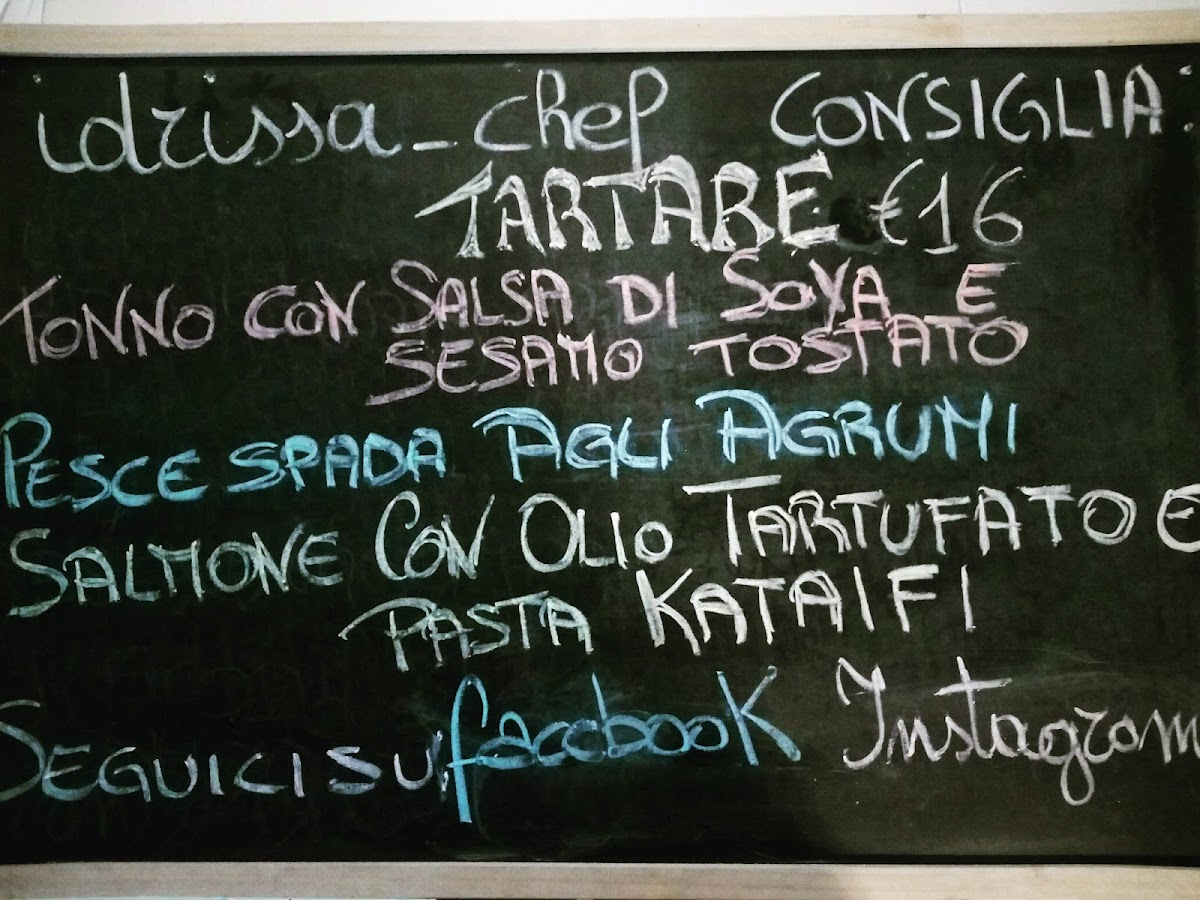 idrissa_chef CONSIGLIA:
TARTARE €16
TONNO CON SALSA DI SOYA E
SESAMO TOSTATO
PESCE SPADA AGLI AGRUMI
SALMONE CON OLIO TARTUFATO E
PASTA KATAIFI
SEGUICI SU facebook Instagram